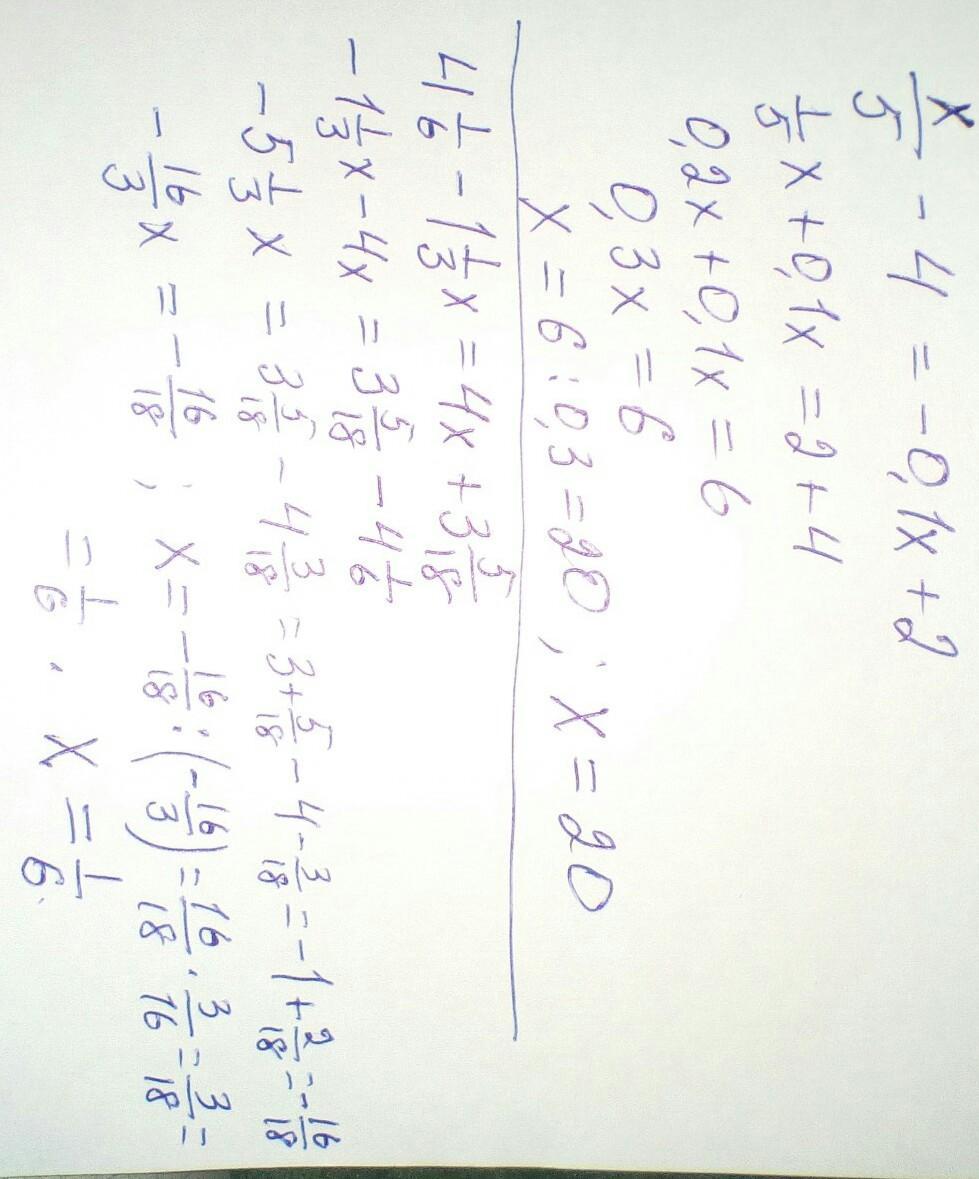 x/5 - 4 = -0,1x + 2
1/5 x + 0,1x = 2 + 4
0,2x + 0,1x = 6
0,3x = 6
x = 6 : 0,3 = 20 ; x = 20
4 1/6 - 1 1/3 x = 4x + 3 5/18
-1 1/3 x - 4x = 3 5/18 - 4 1/6
-5 1/3 x = 3 5/18 - 4 3/18 = 3 + 5/18 - 4 - 3/18 = -1 + 2/18 = -16/18
-16/3 x = -16/18 ; x = -16/18 : (-16/3) = 16/18 · 3/16 = 3/18 =
= 1/6 . x = 1/6.